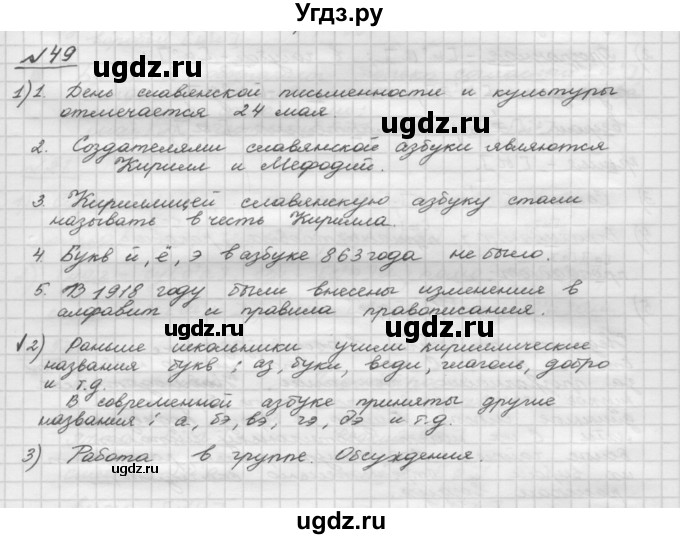 Угдз.ру
№49
ugdz.ru
1) 1. День славянской письменности и культуры
отмечается 24 мая.
ugdz.ru
2. Создателями славянской азбуки являются
Кирилл и Мефодий.
ugdz.ru
3. Кириллицей славянскую азбуку стали
называть в честь Кирилла.
ugdz.ru
4. Букв й, ё, э в азбуке 863 года не было.
ugdz.ru
5. В 1918 году были внесены изменения в
алфавит и правила правописания.
ugdz.ru
2) Раньше школьники учили кириллические
названия букв: аз, буки, веди, глаголь, добро
и т.д.
ugdz.ru
В современной азбуке приняты другие
названия: а, бэ, вэ, гэ, дэ и т.д.
ugdz.ru
3) Работа в группе. Обсуждения.
ugdz.ru
ugdz.ru